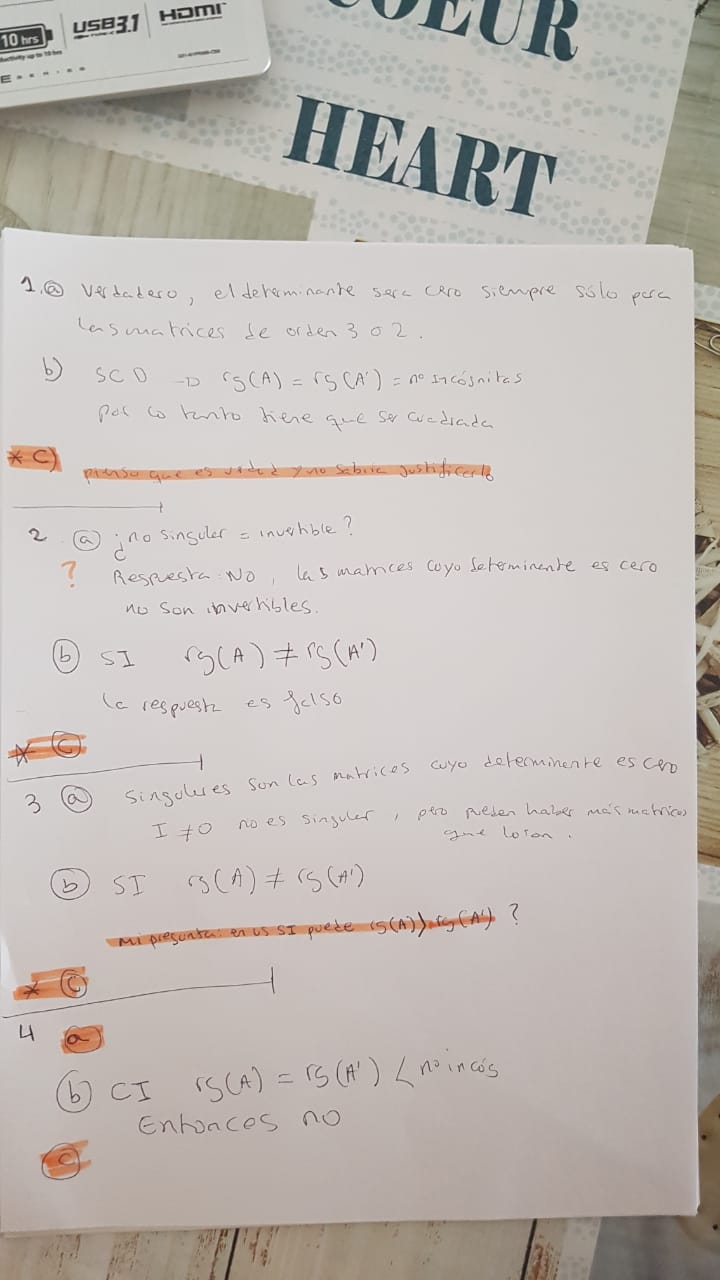 10 hrs
USB3.1
HDMI
COEUR
HEART
1. a Verdadero, el determinante sera cero siempre sólo para
las matrices de orden 3 o 2.
b) SCD → rg(A) = rg(A') = nº incógnitas
por lo tanto tiene que ser cuadrada
* C) pienso que es verdad y no sabria justificarlo
2 a ¿no singular = invertible?
? Respuesta: NO, las matrices cuyo determinante es cero
no son invertibles.
b SI rg(A) ≠ rg(A')
la respuesta es falso
* C
3 a Singulares son las matrices cuyo determinante es cero
I ≠ 0 no es singular, pero pueden haber más matrices
que lo son.
b SI rg(A) ≠ rg(A')
Mi pregunta: en us SI puede rg(A) > rg(A') ?
* C
4 a
b CI rg(A) = rg(A') < nº incós
Entonces no
C